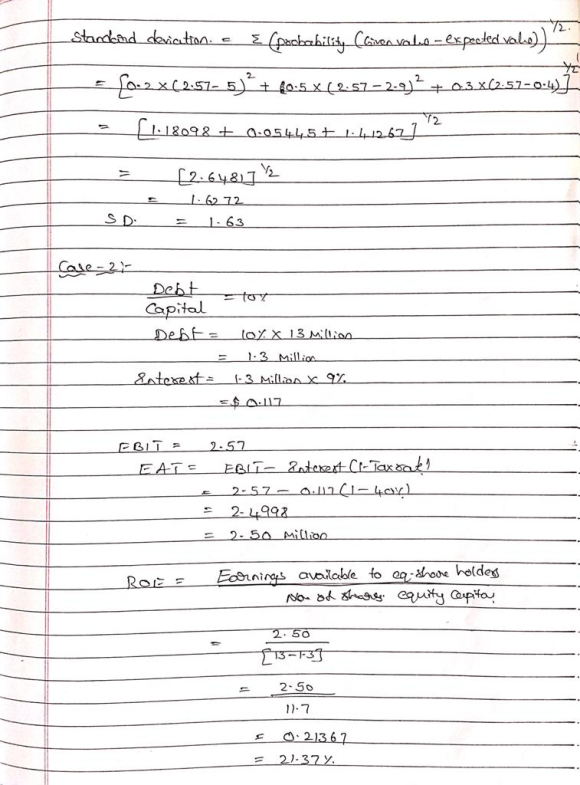 Standard deviation. = Σ (probability (Given value - expected value))^1/2.
= [0.2 × (2.57 - 5)² + (0.5 × (2.57 - 2.9)² + 0.3 × (2.57 - 0.4)]^1/2
= [1.18098 + 0.05445 + 1.41267]^1/2
= [2.6481]^1/2
= 1.6272
S D. = 1.63
Case - 2:-
Debt / Capital = 10%
Debt = 10% × 13 Million
= 1.3 Million
Interest = 1.3 Million × 9%
= $ 0.117
EBIT = 2.57
EAT = EBIT - Interest (1 - Tax rate)
= 2.57 - 0.117 (1 - 40%)
= 2.4998
= 2.50 Million
ROE = Earnings available to eq. share holders / No. of shares equity Capital
= 2.50 / [13 - 1.3]
= 2.50 / 11.7
= 0.21367
= 21.37%.